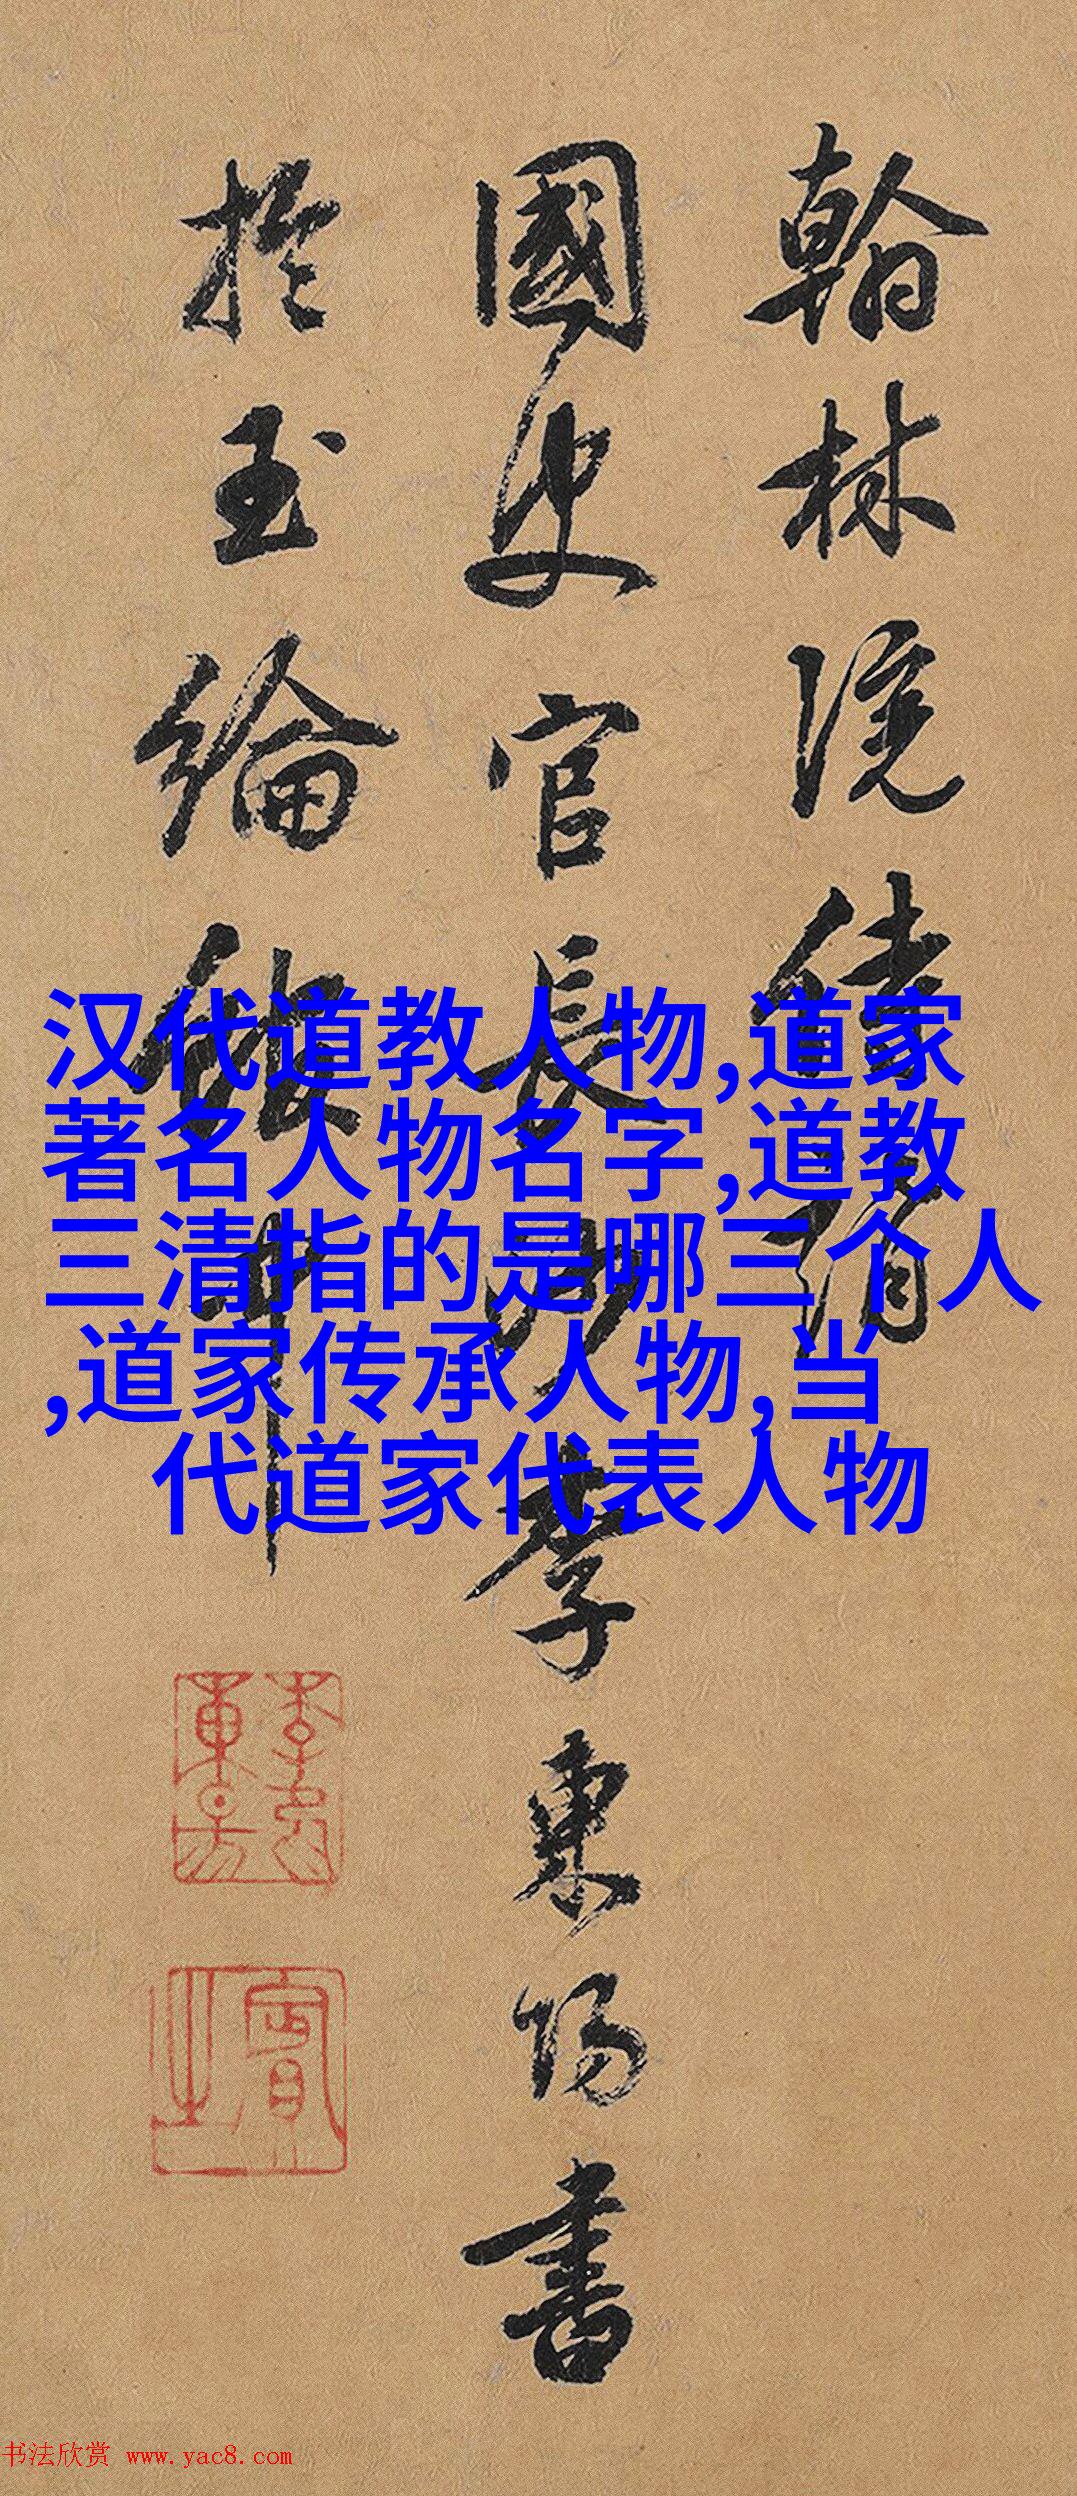 翰林院侍
國史官長沙李東陽書
於玉綸
中
汉代道教人物,道家
著名人物名字,道教
三清指的是哪三个人
,道家传承人物,当
代道家代表人物
书法欣赏 www.yac8.com